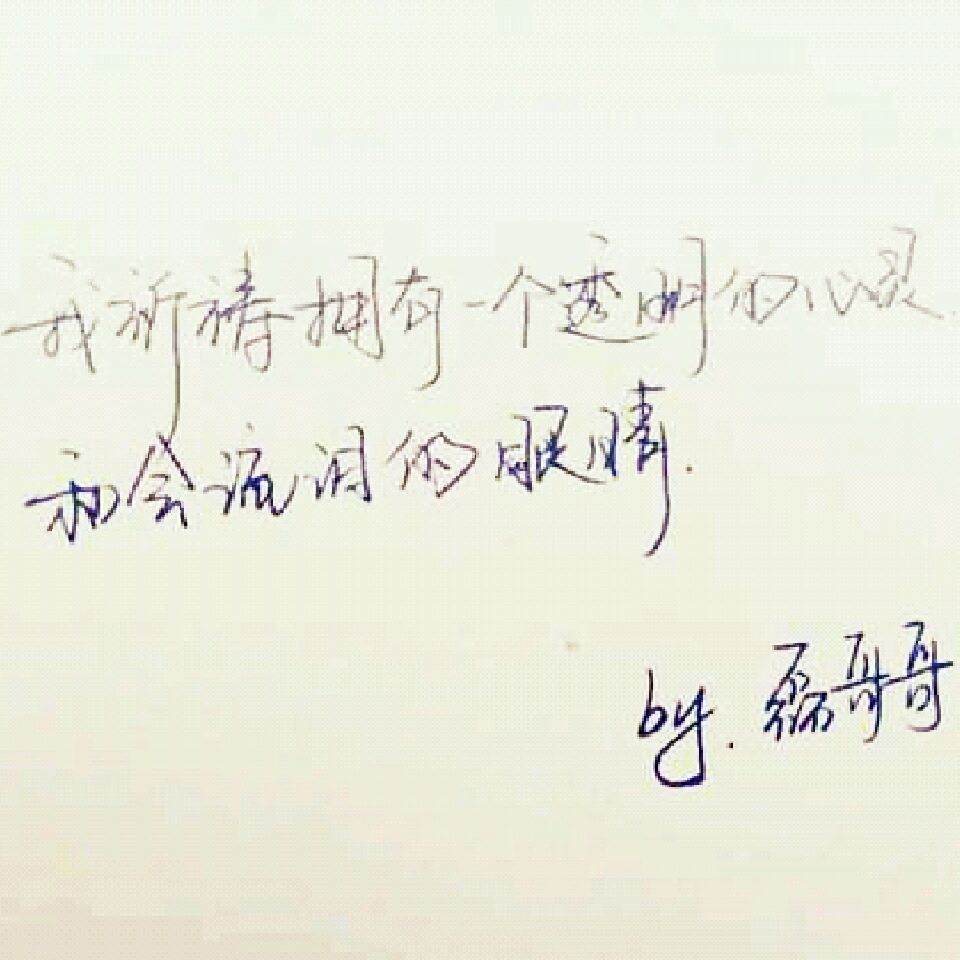 我祈祷拥有一个透明的心灵
和会流泪的眼睛.
by.磊哥哥